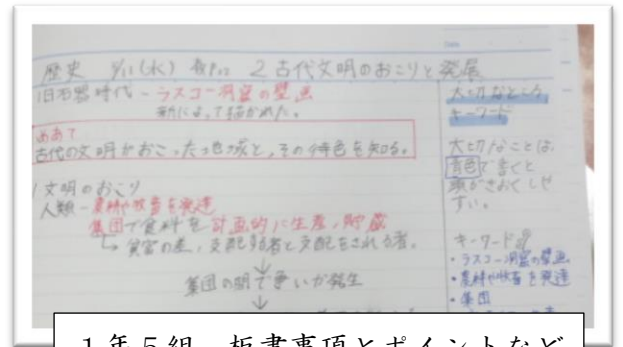 Date
歴史 5/11(水) 教P.22 2 古代文明のおこりと発展
旧石器時代-ラスコー洞窟の壁画
によって描かれた。
めあて
古代の文明がおこった地域と、その特色を知る。
1 文明のおこり
人類-農耕や牧畜を発達
集団で食料を計画的に生産,貯蔵
↳貧富の差,支配する者と支配をされる者。
↓
集団の間で争いが発生
↓
大切なところ
キーワード
大切なことは、
青色で書くと
頭がきおくしや
すい。
キーワード
・ラスコー洞窟の壁画
・農耕や牧畜を発達
・集団
1年5組 板書事項とポイントなど